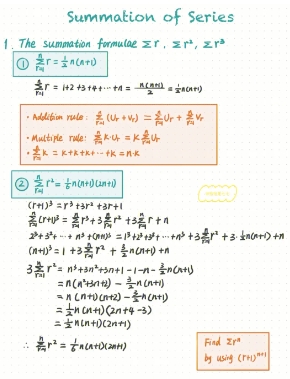 Summation of Series
1. The summation formulae Σr, Σr², Σr³
① Σ_{r=1}^{n} r = ½n(n+1)
Σ_{r=1}^{n} r = 1+2+3+4+⋯+n = n(n+1)/2 = ½n(n+1)
• Addition rule: Σ_{r=1}^{n} (Ur+Vr) = Σ_{r=1}^{n} Ur + Σ_{r=1}^{n} Vr
• Multiple rule: Σ_{r=1}^{n} k·Ur = k Σ_{r=1}^{n} Ur
• Σ_{r=1}^{n} k = k+k+k+⋯+k = n·k
② Σ_{r=1}^{n} r² = ⅙n(n+1)(2n+1)
(r+1)³ = r³+3r²+3r+1
Σ_{r=1}^{n} (r+1)³ = Σ_{r=1}^{n} r³ + 3Σ_{r=1}^{n} r² + 3Σ_{r=1}^{n} r + n
2³+3³+⋯+n³+(n+1)³ = 1³+2³+3³+⋯+n³+3Σ_{r=1}^{n} r² + 3·½n(n+1)+n
(n+1)³ = 1+3Σ_{r=1}^{n} r² + 3/2 n(n+1)+n
3Σ_{r=1}^{n} r² = n³+3n²+3n+1-1-n-3/2 n(n+1)
= n(n²+3n+2) - 3/2 n(n+1)
= n(n+1)(n+2) - 3/2 n(n+1)
= ½n(n+1)(2n+4-3)
= ½n(n+1)(2n+1)
∴ Σ_{r=1}^{n} r² = ⅙n(n+1)(2n+1)
Find Σrⁿ
by using (r+1)ⁿ⁺¹